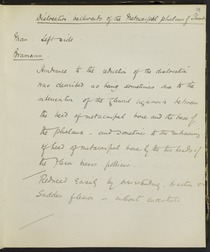 Dislocation backwards of the Metacarpal phalanx of Thumb
Man Left side.
Hindrance to the reduction of the dislocation
was described as being sometimes due to the
interposition of the Glenoid ligament between
the head of metacarpal bone and the base of
the phalanx - and sometimes to the embracing
of head of metacarpal bone by the two heads of
the Flexor brevis pollicis.
Reduced easily by
Sudden flexion - without